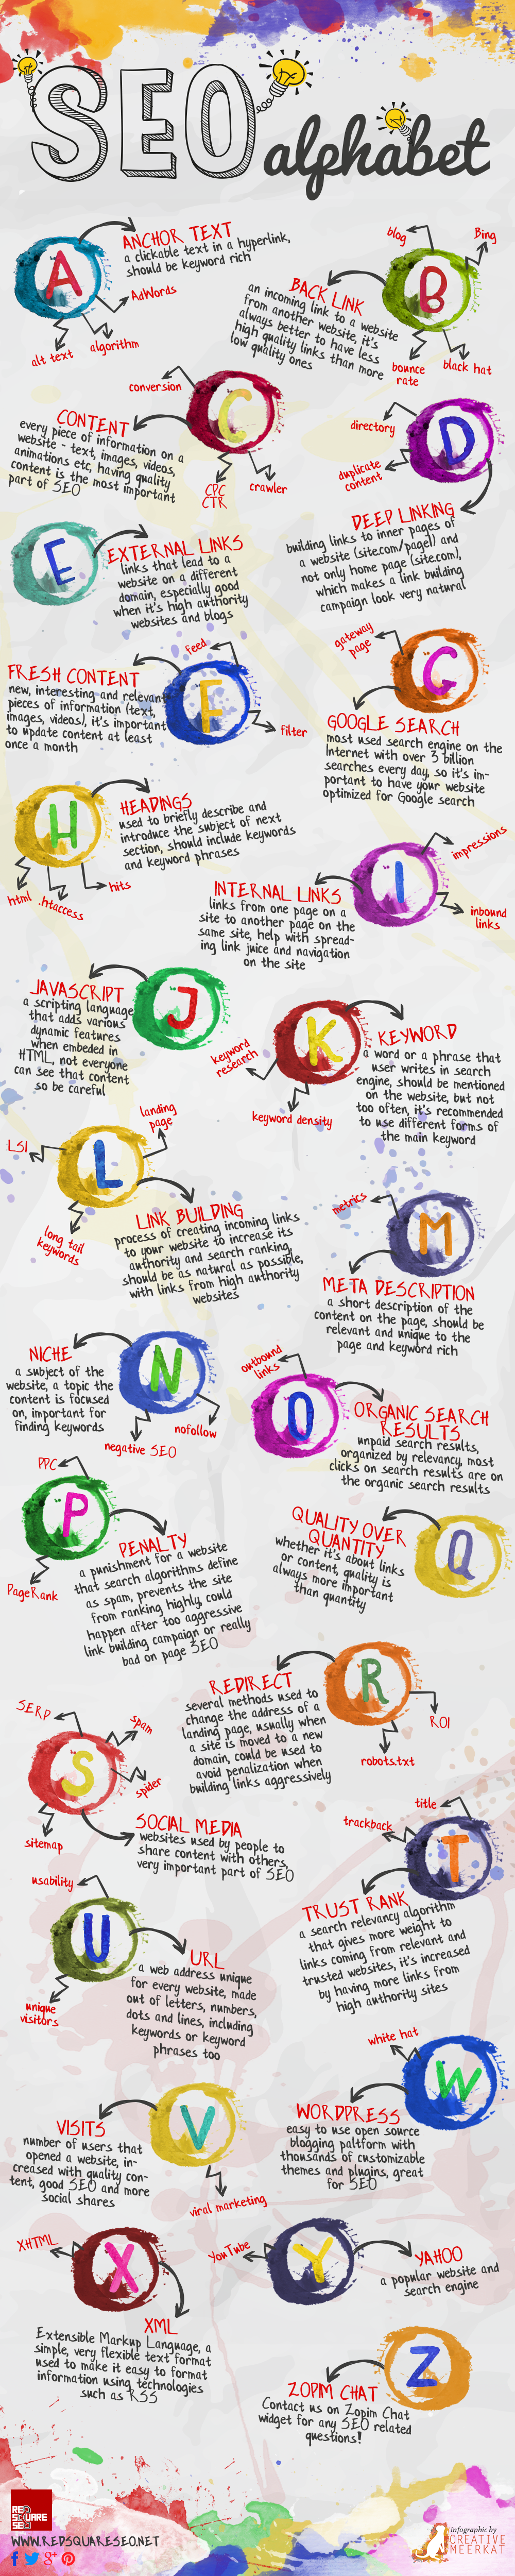 SEO
alphabet
A
ANCHOR TEXT
a clickable text in a hyperlink,
should be keyword rich
AdWords
algorithm
alt text
blog
Bing
B
BACK LINK
an incoming link to a website
from another website, it's
always better to have less
high quality links than more
low quality ones
bounce
rate
black hat
conversion
C
CONTENT
every piece of information on a
website - text, images, videos,
animations etc, having quality
content is the most important
part of SEO
CPC
CTR
crawler
directory
D
duplicate
content
DEEP LINKING
building links to inner pages of
a website (site.com/page1) and
not only home page (site.com),
which makes a link building
campaign look very natural
E
EXTERNAL LINKS
links that lead to a
website on a different
domain, especially good
when it's high authority
websites and blogs
feed
F
FRESH CONTENT
new, interesting and relevant
pieces of information (text,
images, videos), it's important
to update content at least
once a month
filter
gateway
page
G
GOOGLE SEARCH
most used search engine on the
Internet with over 3 billion
searches every day, so it's im-
portant to have your website
optimized for Google search
H
HEADINGS
used to briefly describe and
introduce the subject of next
section, should include keywords
and keyword phrases
html
.htaccess
hits
impressions
I
INTERNAL LINKS
links from one page on a
site to another page on the
same site, help with spread-
ing link juice and navigation
on the site
inbound
links
J
JAVASCRIPT
a scripting language
that adds various
dynamic features
when embeded in
HTML, not everyone
can see that content
so be careful
K
KEYWORD
a word or a phrase that
user writes in search
engine, should be mentioned
on the website, but not
too often, it's recommended
to use different forms of
the main keyword
keyword
research
keyword density
landing
page
LSI
L
long tail
keywords
LINK BUILDING
process of creating incoming links
to your website to increase its
authority and search ranking,
should be as natural as possible,
with links from high authority
websites
metrics
M
META DESCRIPTION
a short description of the
content on the page, should be
relevant and unique to the
page and keyword rich
N
NICHE
a subject of the
website, a topic the
content is focused
on, important for
finding keywords
negative SEO
nofollow
outbound
links
O
ORGANIC SEARCH
RESULTS
unpaid search results,
organized by relevancy, most
clicks on search results are on
the organic search results
PPC
P
PageRank
PENALTY
a punishment for a website
that search algorithms define
as spam, prevents the site
from ranking highly, could
happen after too aggressive
link building campaign or really
bad on page SEO
Q
QUALITY OVER
QUANTITY
whether it's about links
or content, quality is
always more important
than quantity
R
REDIRECT
several methods used to
change the address of a
landing page, usually when
a site is moved to a new
domain, could be used to
avoid penalization when
building links aggressively
ROI
robots.txt
SERP
spam
S
spider
sitemap
SOCIAL MEDIA
websites used by people to
share content with others,
very important part of SEO
title
trackback
T
TRUST RANK
a search relevancy algorithm
that gives more weight to
links coming from relevant and
trusted websites, it's increased
by having more links from
high authority sites
usability
U
unique
visitors
URL
a web address unique
for every website, made
out of letters, numbers,
dots and lines, including
keywords or keyword
phrases too
white hat
W
WORDPRESS
easy to use open source
blogging paltform with
thousands of customizable
themes and plugins, great
for SEO
V
VISITS
number of users that
opened a website, in-
creased with quality con-
tent, good SEO and more
social shares
viral marketing
XHTML
X
XML
Extensible Markup Language, a
simple, very flexible text format
used to make it easy to format
information using technologies
such as RSS
YouTube
Y
YAHOO
a popular website and
search engine
Z
ZOPIM CHAT
Contact us on Zopim Chat
widget for any SEO related
questions!
RED
SQUARE
SEO
WWW.REDSQUARESEO.NET
infographic by
CREATIVE
MEERKAT